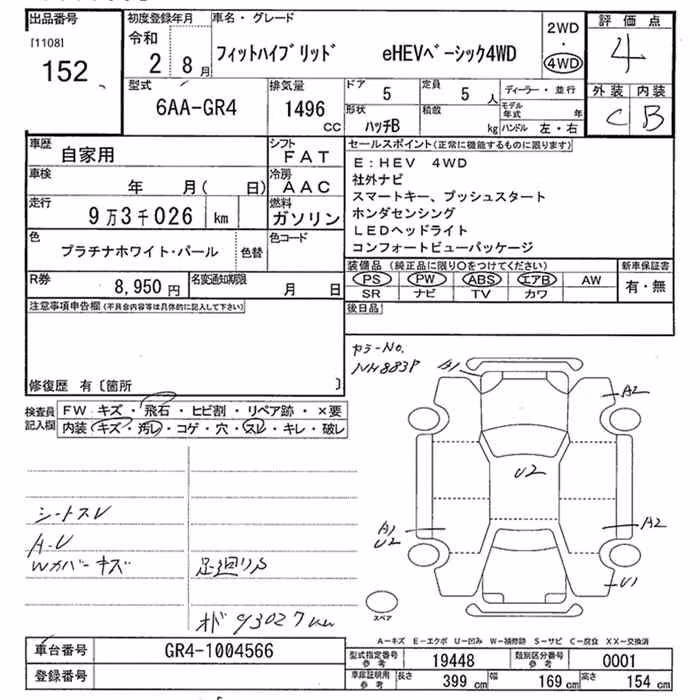 出品番号
[1108]
152
初度登録年月
令和
2 8月
車名・グレード
フィットハイブリッド eHEVベーシック4WD
2WD
・
4WD
評価点
4
外装 内装
C B
型式
6AA-GR4
排気量
1496
CC
ドア
5
定員
5 人
形状
ハッチB
積載
kg
ディーラー・並行
モデル年式 年
ハンドル 左・右
車歴
自家用
シフト
FAT
車検
年 月( 日)
冷房
AAC
走行
9万3千026 km
燃料
ガソリン
色
プラチナホワイト・パール
色替
色コード
R券
8,950円
名変通知期限
月 日
セールスポイント(正常に機能するものに限ります)
E:HEV 4WD
社外ナビ
スマートキー、プッシュスタート
ホンダセンシング
LEDヘッドライト
コンフォートビューパッケージ
装備品 (純正品に限り○をつけてください)
PS PW ABS エアB AW
SR ナビ TV カワ
新車保証書
有・無
後日品
注意事項申告欄(不具合内容等は具体的に記入して下さい)
修復歴 有〔箇所 〕
検査員
記入欄
FW キズ・飛石・ヒビ割・リペア跡・×要
内装 キズ・汚レ・コゲ・穴・スレ・キレ・破レ
カラーNo.
NH883P
A1
A2
U2
A1
U2
A2
U1
スペア
シートスレ
Wカバーキズ
足廻りS
オド 93027km
A−キズ E−エクボ U−凹み W−補修跡 S−サビ C−腐食 XX−交換済
車台番号
GR4-1004566
登録番号
型式指定番号
参考
19448
類別区分番号
参考
0001
車庫証明用
参考
長さ 399 cm
幅 169 cm
高さ 154 cm